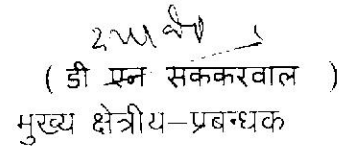 ( डी एन सककरवाल )
मुख्य क्षेत्रीय-प्रबन्धक